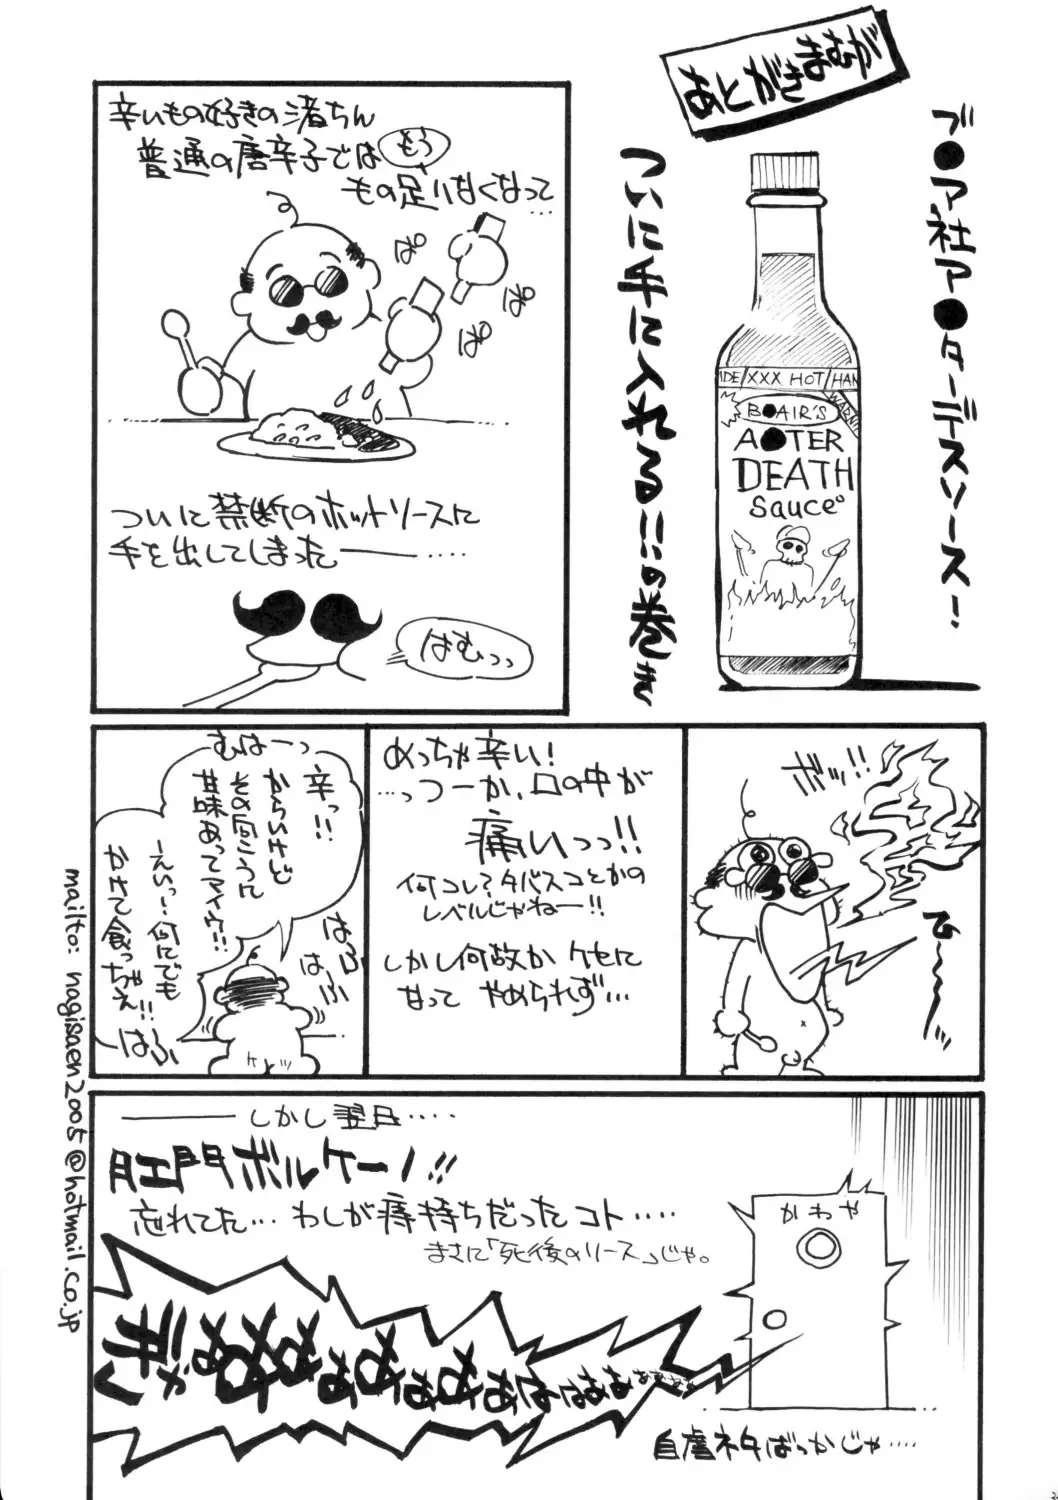 あとがきまむが
ブ●ア社ア●ターデスソース!
ついに手に入れる!!の巻き
IDE/XXX HOT/HAN
WARNIN
B●AIR'S
A●TER
DEATH
Sauce
辛いもの好きの渚ちん
普通の唐辛子ではもう
もの足りなくなって…
ぱ
ぱ
ぱ
ぱ
ついに禁断のホットソースに
手を出してしまった――‥‥
はむっっ
ボッ!!
ひ〜〜〜ッ
めっちゃ辛い!
…っつーか、口の中が
痛いっっ!!
何コレ?タバスコとかの
レベルじゃねー!!
しかし何故かクセに
なって やめられず…
むはーっ
辛っ!!
からいけど
その向こうに
甘味あってマイウ!!
ーえいっ…何にでも
かけて食っちゃえ!!
はふ
はふ
はふ
――しかし翌日‥‥
肛門ボルケーノ!!
忘れてた…わしが痔持ちだったコト‥‥
まさに「死後のソース」じゃ。
かわや
自虐ネタばっかじゃ‥‥
mailto: nagisaen2005@hotmail.co.jp